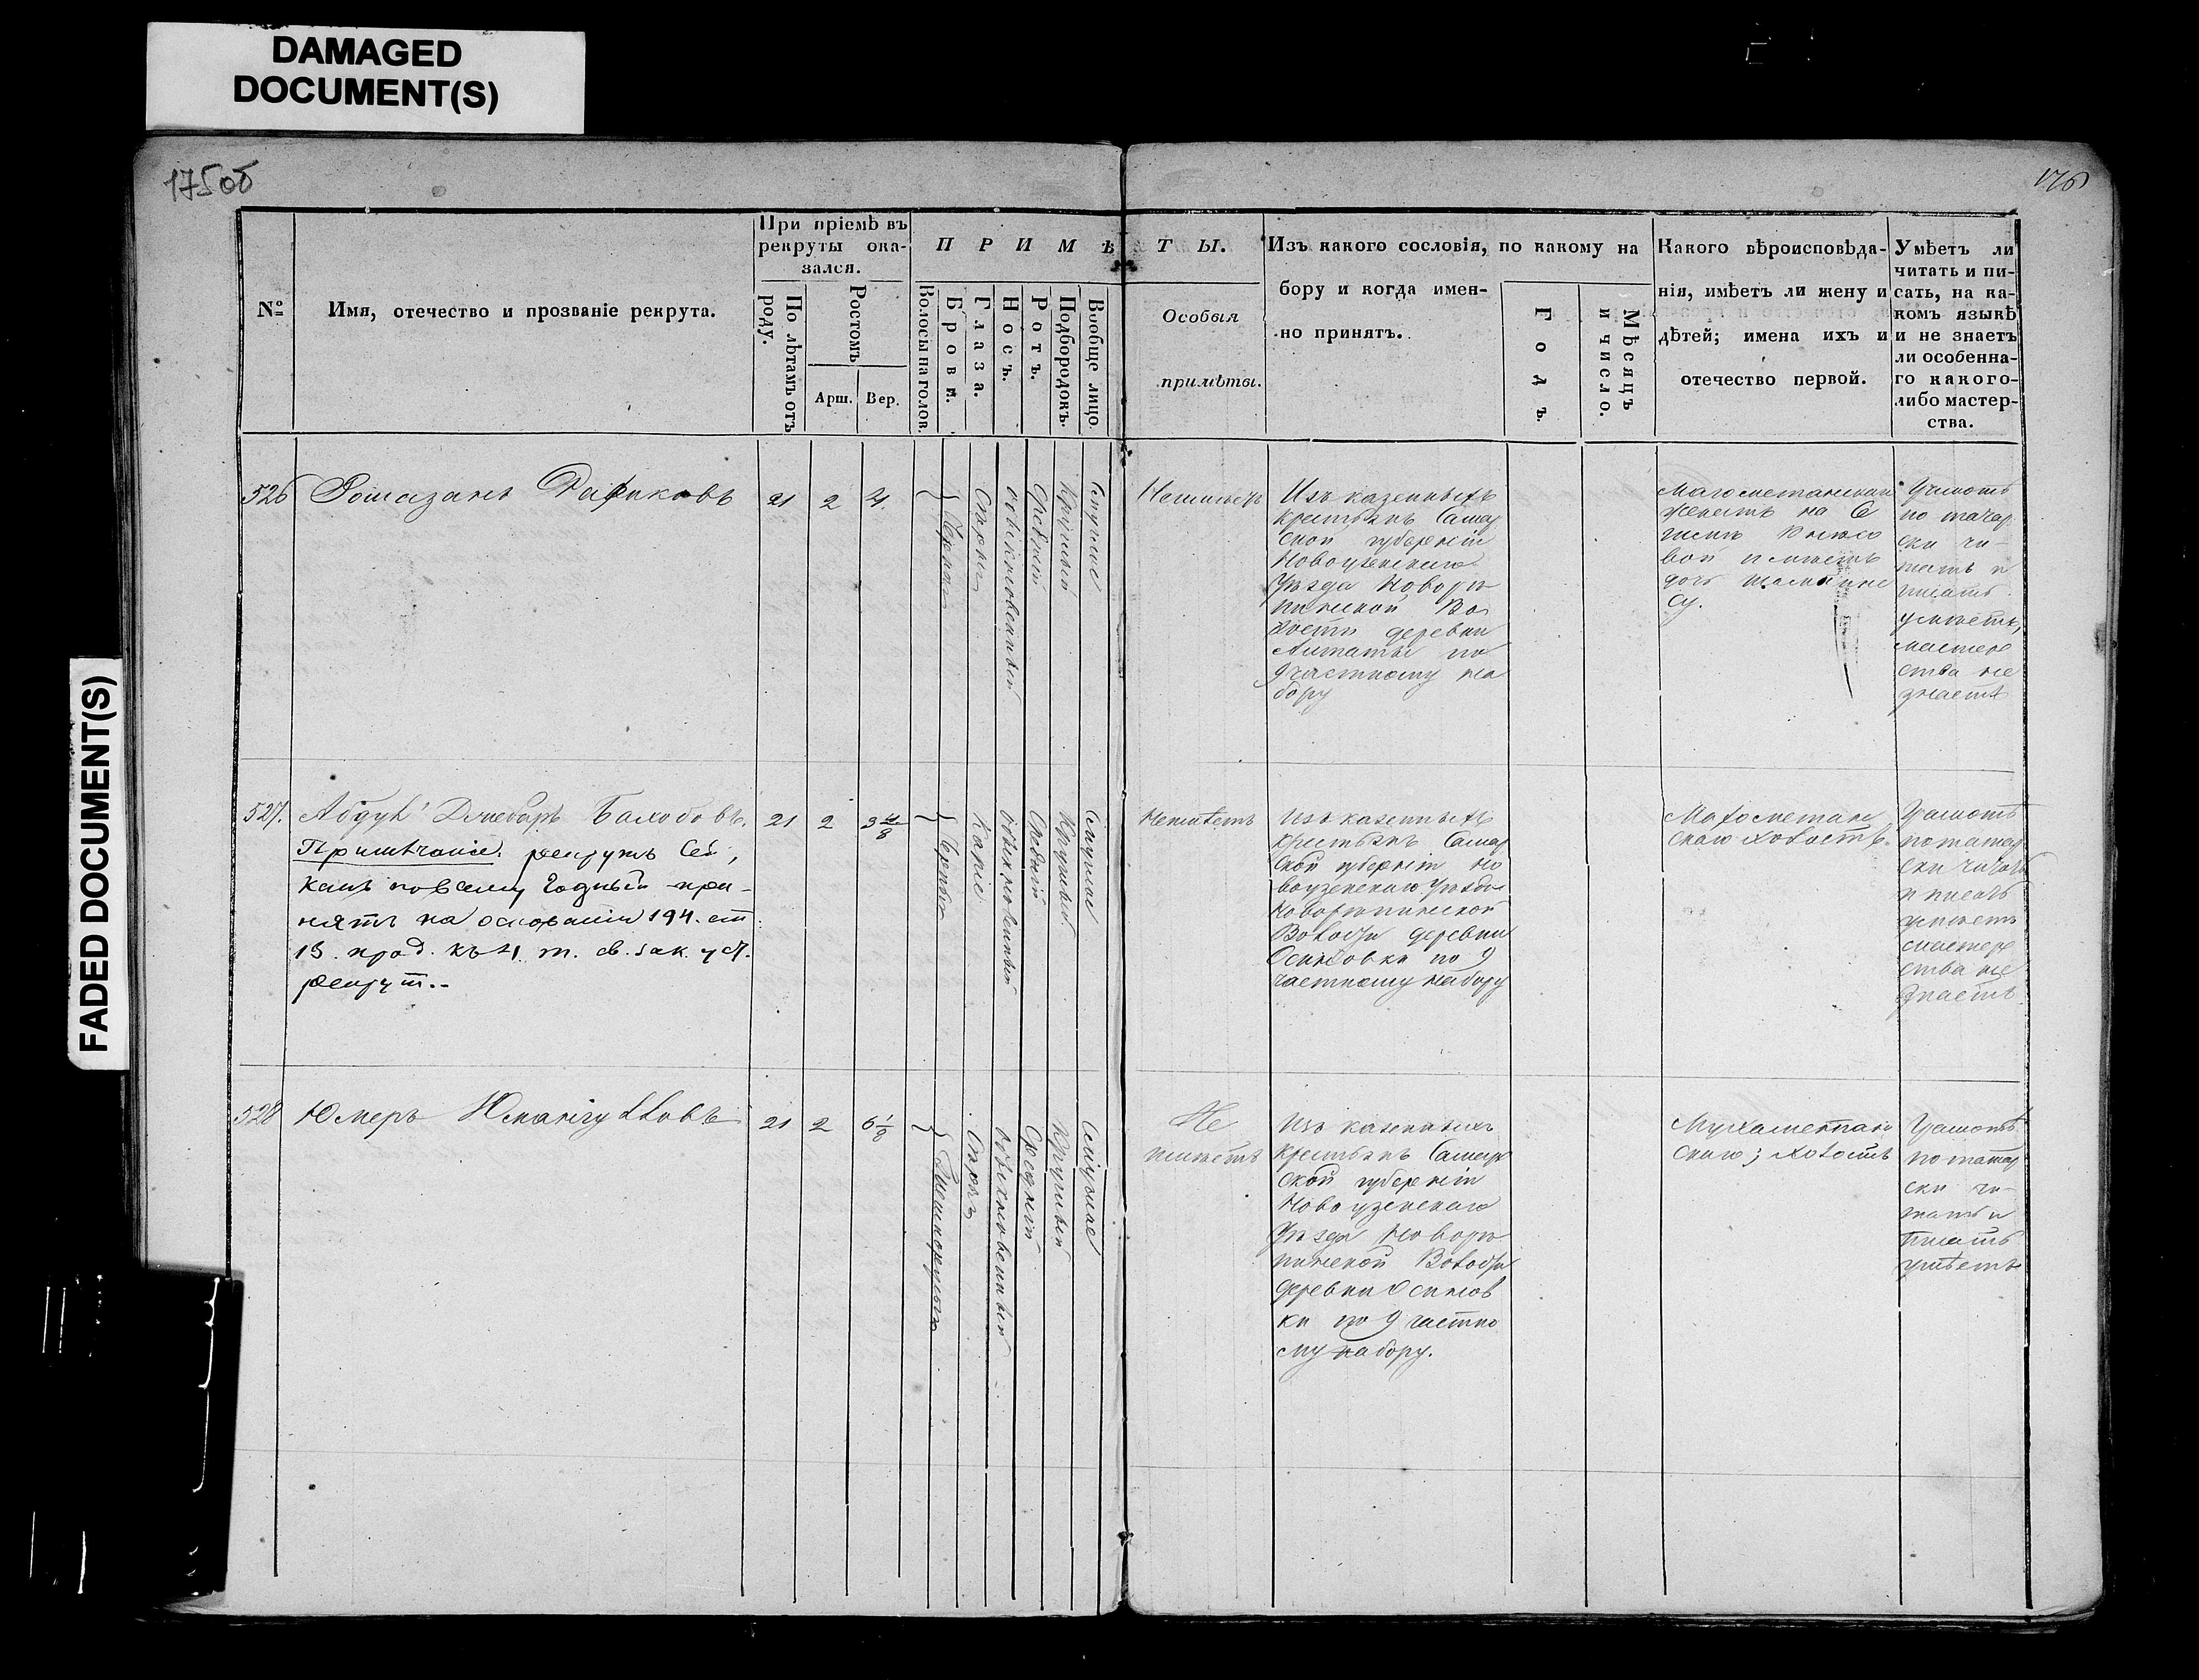 DAMAGED
DOCUMENT(S)
FADED DOCUMENT(S)
175об
176
№
Имя, отечество и прозваніе рекрута.
При пріемѣ въ
рекруты ока-
зался.
По лѣтамъ отъ
роду.
Ростомъ
Арш.
Вер.
ПРИМѢТЫ.
Волосы на голов.
Брови.
Глаза.
Носъ.
Ротъ.
Подбородокъ.
Вообще лицо.
Особыя
примѣты.
Изъ какого сословія, по какому на
бору и когда имен-
но принятъ.
Годъ.
Мѣсяцъ
и число.
Какого вѣроисповѣда-
нія, имѣетъ ли жену и
дѣтей; имена ихъ и
отечество первой.
Умѣетъ ли
читать и пи-
сать, на ка-
комъ языкѣ
и не знаетъ
ли особенна-
го какого-
либо мастер-
ства.
526
21
2
4.
обыкновенный
Средній
Круглый
Смуглое
Неимѣетъ
Изъ казенныхъ
крестьянъ Самар
ской губерніи
Новоузенскаго
Уѣзда Новорѣ
пинской Во
лости деревни
Алтаты по
9 частному на
бору
женатъ на
Грамотѣ
по татар
ски чи-
тать и
писать
умѣетъ,
мастер
ства не
знаетъ
527.
Абдулъ Джебаръ
Примѣчаніе. рекрутъ сей,
какъ по всему годный при-
нятъ на основаніи 194. ст
15. прод. къ 4 т. св. зак. уст.
рекрут.
21
2
3 4/8
Черные
Каріе
обыкновенный
Средній
Круглый
Смуглое
Неимѣетъ
Изъ казенныхъ
крестьянъ Самар
ской губерніи Но
воузенскаго Уѣзда
Новорѣпинской
Волости деревни
Осиновки по 9
частному набору
Магометан
скаго холостъ.
Грамотѣ
по татар
ски читать
и писать
умѣетъ
мастер
ства не
знаетъ
528
Юмеръ Юмангуловъ
21
2
6 1/8
Темнорусые
обыкновенный
Средній
Круглый
Смуглое
Не
имѣетъ
Изъ казенныхъ
крестьянъ Самар
ской губерніи
Новоузенскаго
Уѣзда Новорѣ
пинской Волости
деревни Осинов
ки по 9 частно
му набору.
Мухаметтан
скаго; холостъ
Грамотѣ
по татар
ски чи-
тать и
писать
умѣетъ